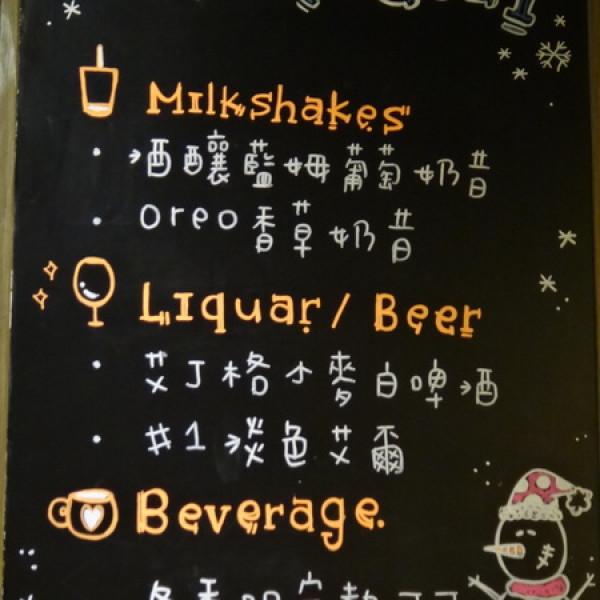 Milkshakes
酒釀藍姆葡萄奶昔
oreo香草奶昔
Liquar/ Beer
艾丁格小麥白啤酒
#1 淡色艾爾
Beverage.